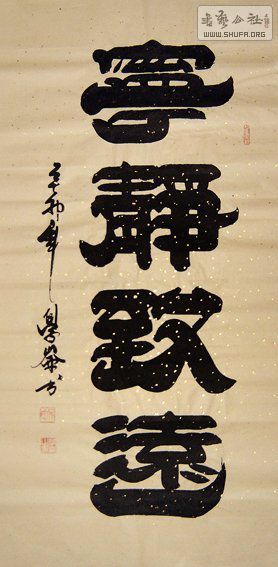 書藝公社
WWW.SHUFA.ORG
寧靜致遠
辛卯年